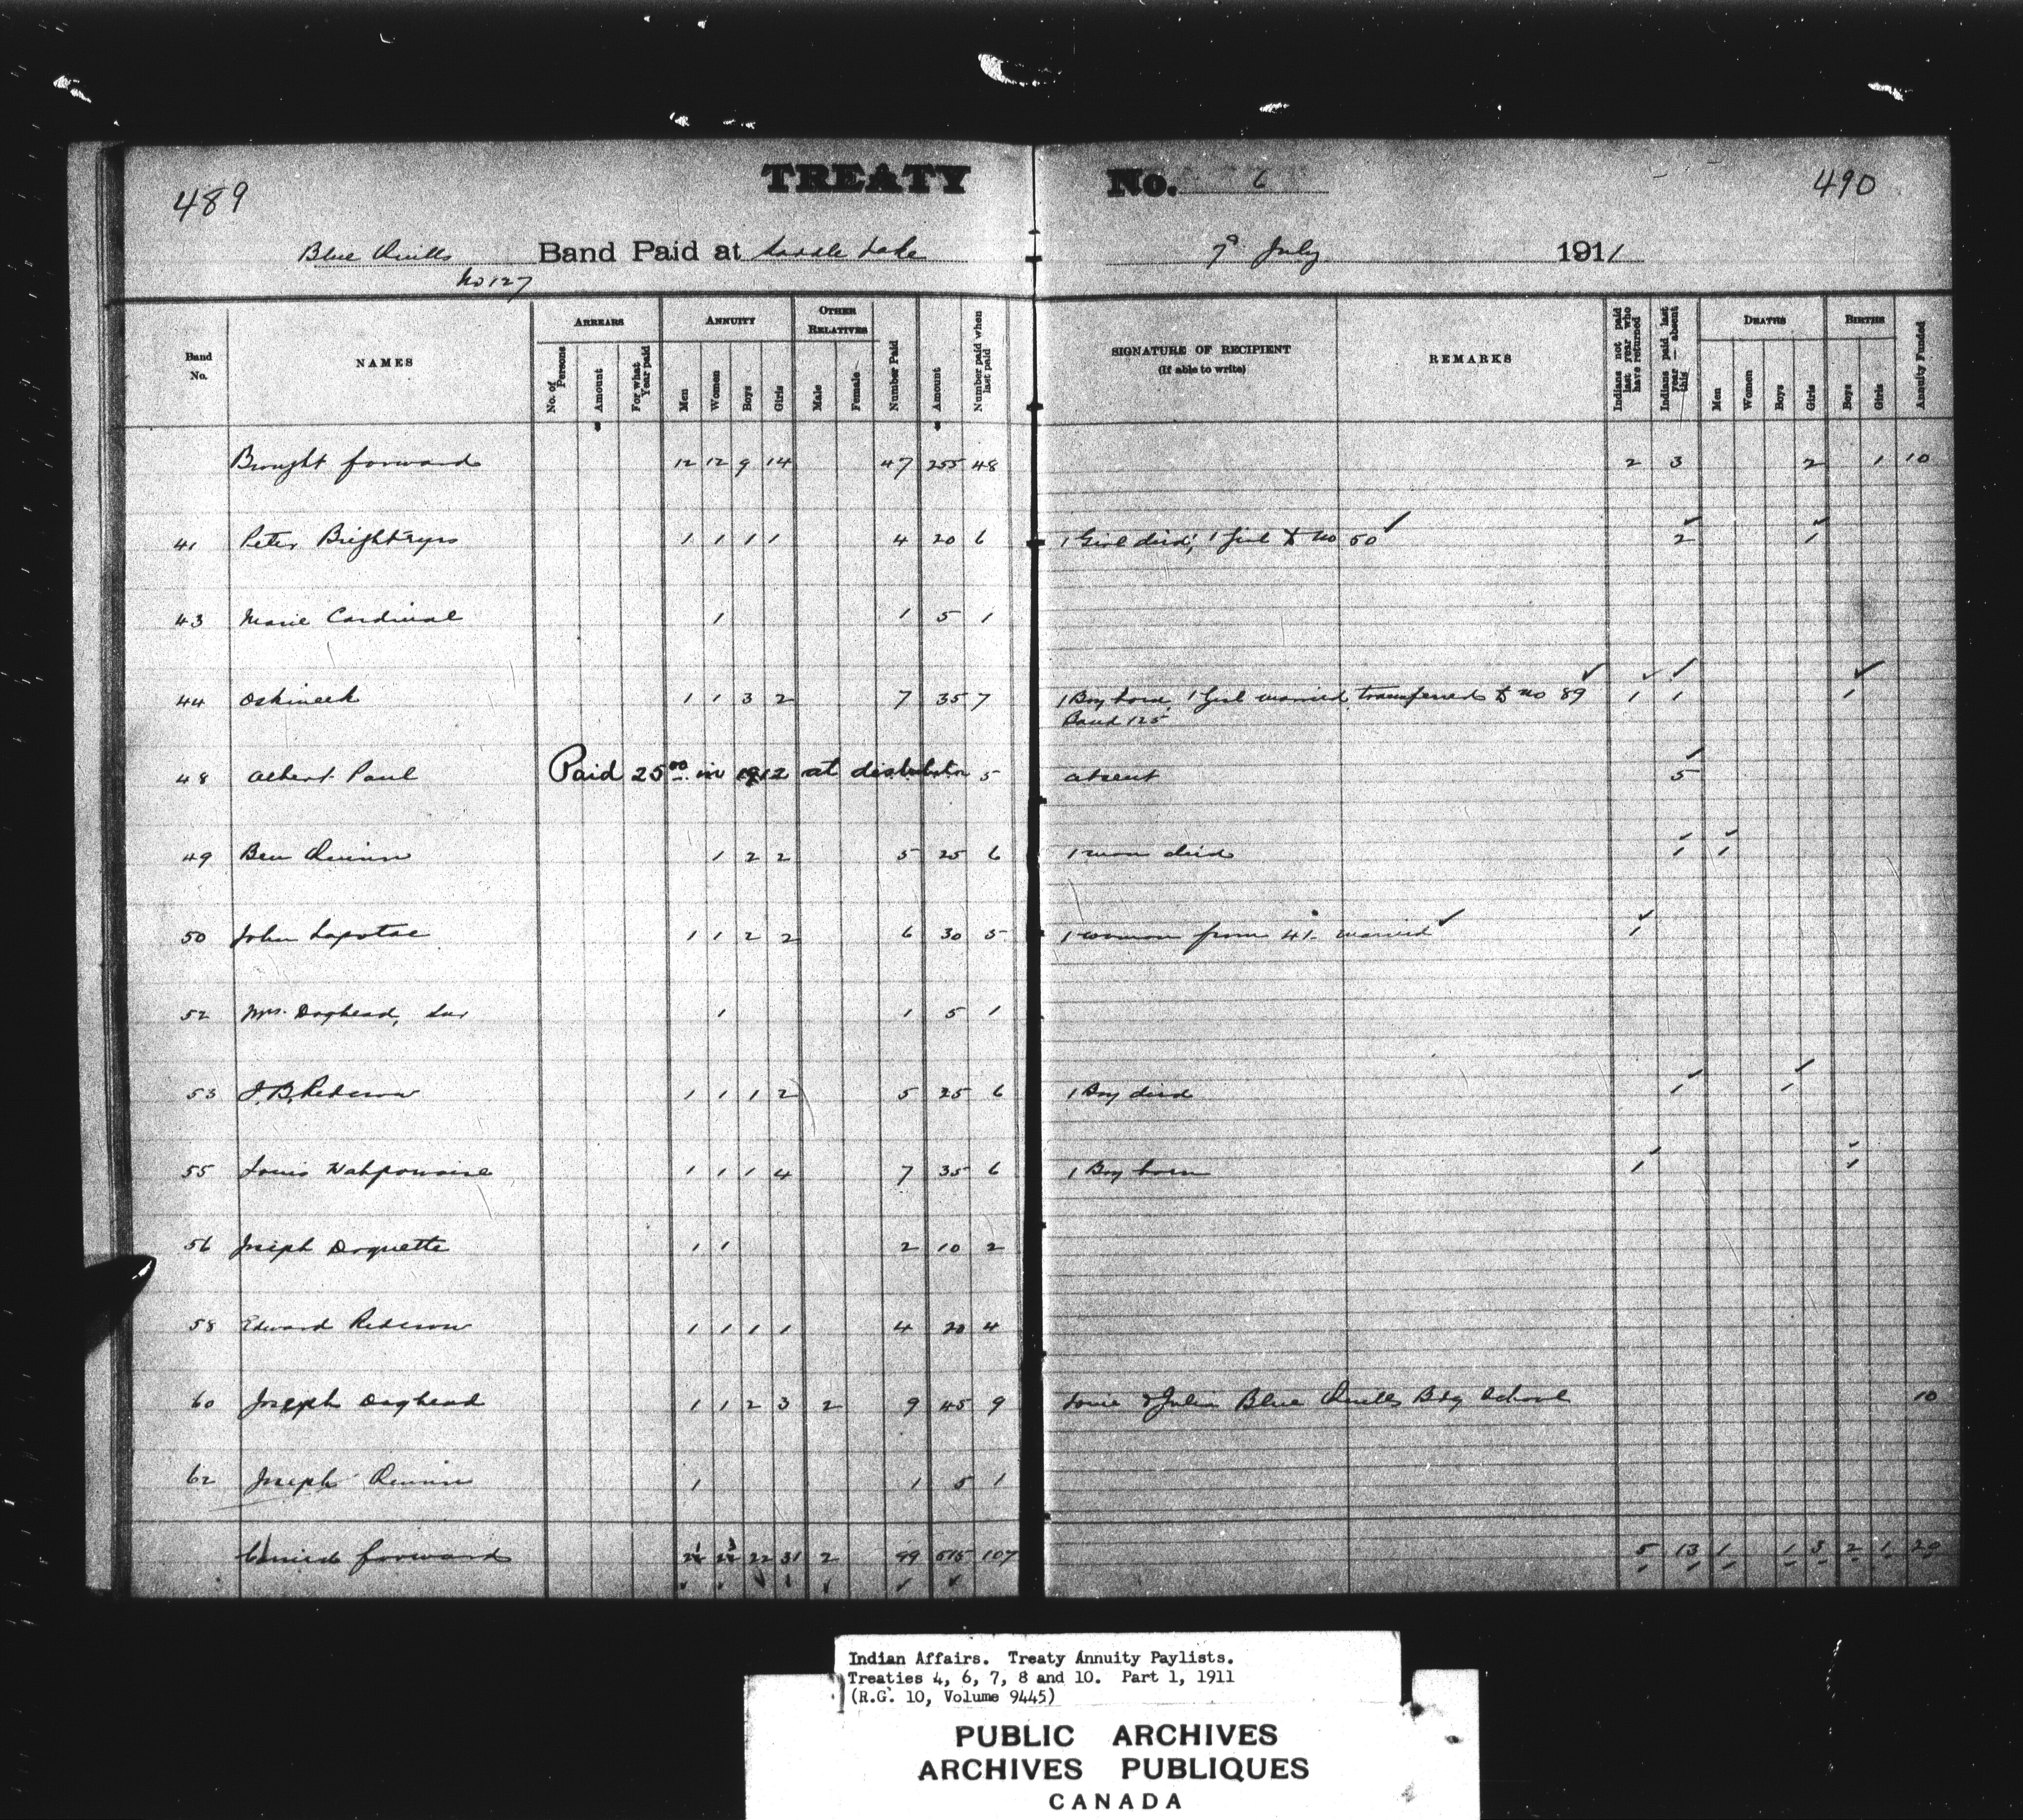 TREATY No. 6
489
490
Blue Quills Band Paid at Saddle Lake 7th July 1911
No 127
Band No. NAMES ARREARS No. of Persons Amount For what Year paid ANNUITY Men Women Boys Girls OTHER RELATIVES Male Female Number Paid Amount Number paid when last paid SIGNATURE OF RECIPIENT (If able to write) REMARKS Indians not paid last year who have returned Indians paid last year — absent this DEATHS Men Women Boys Girls BIRTHS Boys Girls Annuity Funded
Brought forward 12 12 9 14 47 255 48 2 3 2 1 10
41 Peter Brighteyes 1 1 1 1 4 20 6 1 Girl died, 1 girl to no 50 ✓ 2 1
43 Marie Cardinal 1 1 5 1
44 Oskineek 1 1 3 2 7 35 7 1 Boy born, 1 Girl married transferred to no 89 1 1 1
Band 125
48 Albert Paul Paid 25 00 in 1912 at distribution 5 absent 5
49 Ben Quinn 1 2 2 5 25 6 1 man died 1 1
50 John Lapotac 1 1 2 2 6 30 5 1 woman from 41. married ✓ 1
52 Mrs. Doghead, Snr 1 1 5 1
53 J.B. Redcrow 1 1 1 2 5 25 6 1 Boy died 1 1
55 Louis Wahpowaise 1 1 1 4 7 35 6 1 Boy born 1 1
56 Joseph Doquette 1 1 2 10 2
58 Edward Redcrow 1 1 1 1 4 20 4
60 Joseph Doghead 1 1 2 3 2 9 45 9 & Julia Blue Quills Bdg School 10
62 Joseph Quinn 1 1 5 1
Carried forward 22 31 2 99 515 107 5 13 1 1 3 2 1 20
Indian Affairs. Treaty Annuity Paylists.
Treaties 4, 6, 7, 8 and 10. Part 1, 1911
(R.G. 10, Volume 9445)
PUBLIC ARCHIVES
ARCHIVES PUBLIQUES
CANADA